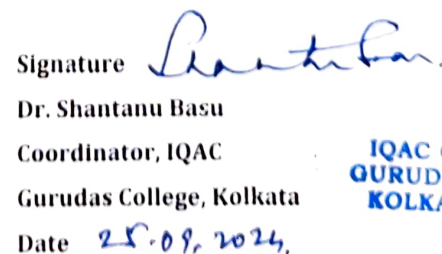 Signature
Dr. Shantanu Basu
Coordinator, IQAC
Gurudas College, Kolkata
Date 25.09.2024.
IQAC
GURUD
KOLKA